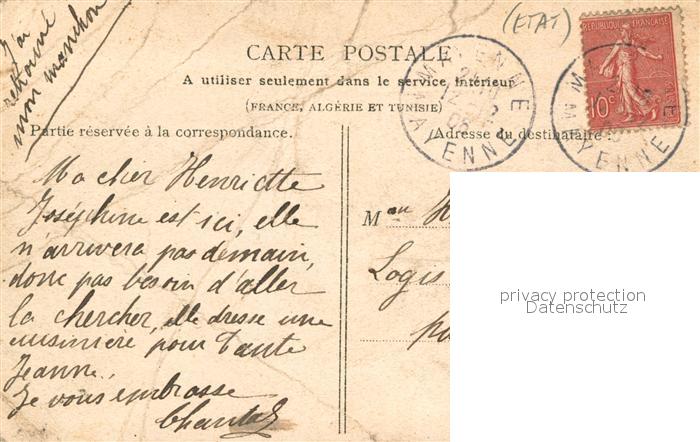 (ETAT)
J'ai
retrouvé
mon manchon
REPUBLIQUE FRANÇAISE
10c
CARTE POSTALE
A utiliser seulement dans le service intérieur
(FRANCE, ALGÉRIE ET TUNISIE)
MAYENNE
MAYENNE
Partie réservée à la correspondance.
Adresse du destinataire
Ma chier Henriette
Joséphine est ici, elle
n'arrivera pas demain,
donc pas besoin d'aller
la chercher, elle dresse une
cuisinière pour Tante
Jeanne.
Je vous embrasse
Chantal
M
Logis
privacy protection
Datenschutz